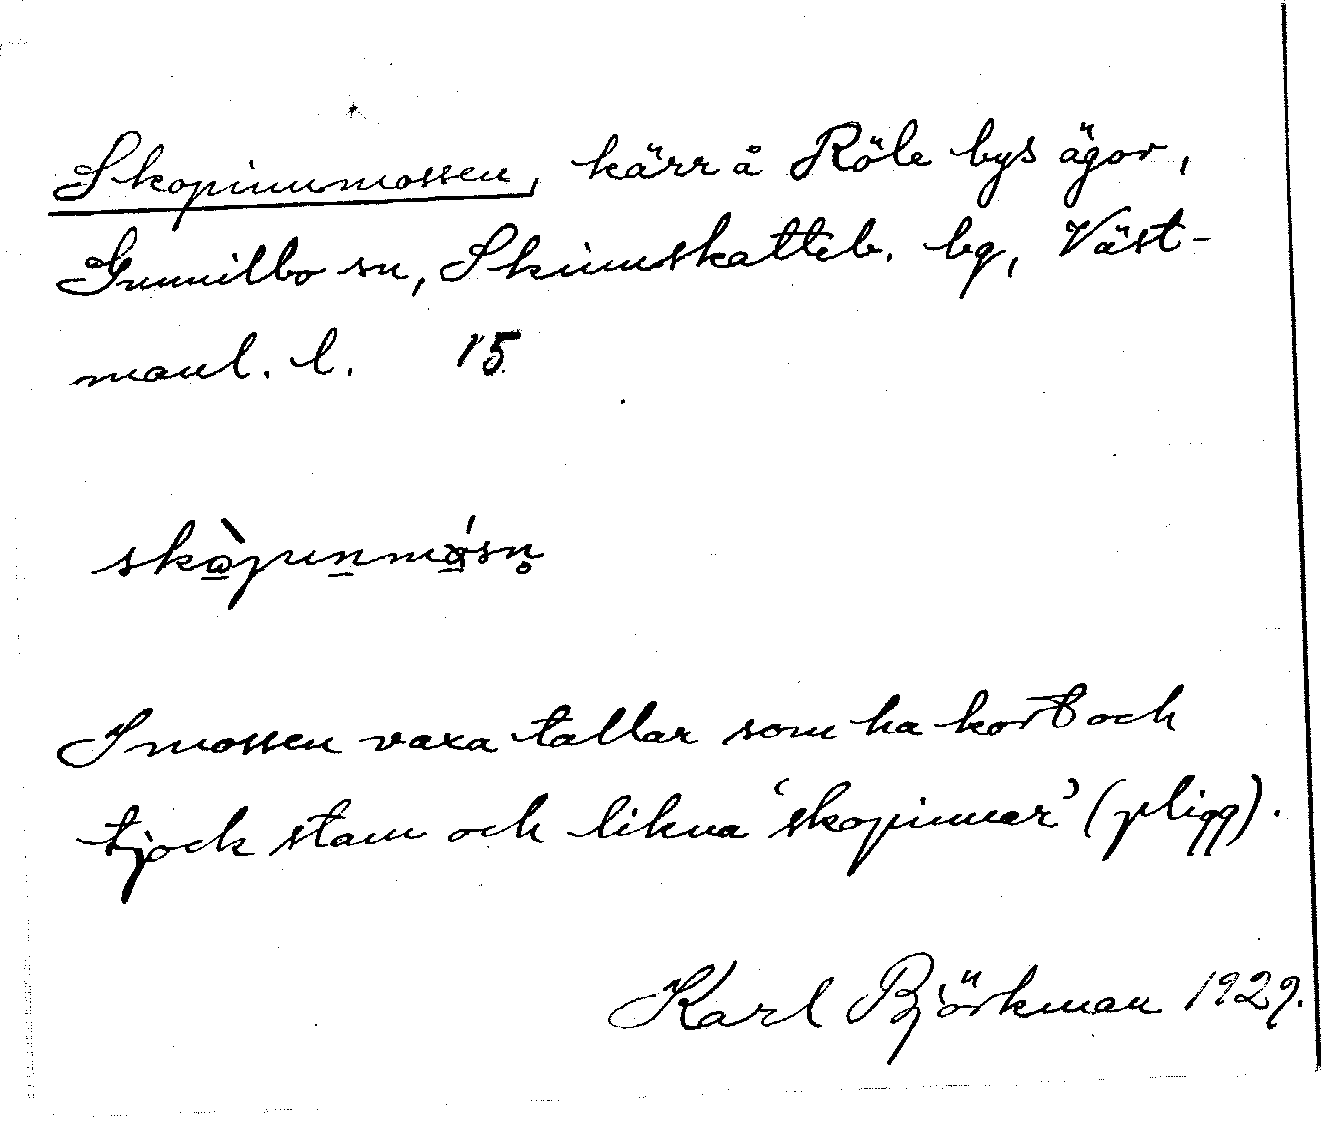 Skopinnmossen, kärr å Röle bys ägor,
Gunnilbo sn, Skinnskatteb. bg, Väst-
manl. l. 15
skòpinmósn̥
I mossen vaxa tallar som ha kort och
tjock stam och likna ‘skopinnar’ (pligg).
Karl Björkman 1929.